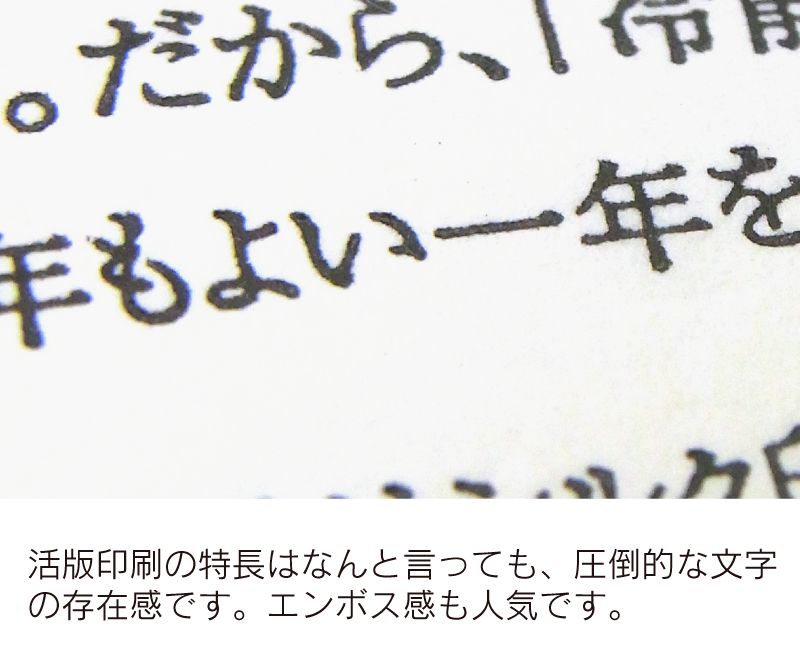 。だから、「冷
年もよい一年を
活版印刷の特長はなんと言っても、圧倒的な文字
の存在感です。エンボス感も人気です。